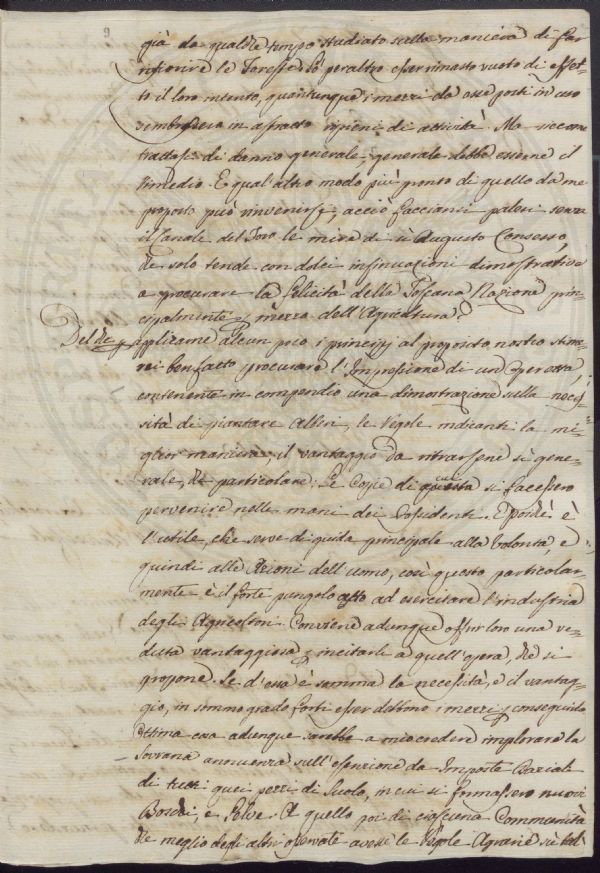 già da qualche tempo studiato sulla maniera di far
rifiorire le Foreste. Sò peraltro esser rimasto vuoto di effet-
to il loro intento, quantunque i mezzi da esse posti in uso
sembrassero in astratto ripieni di attività. Ma siccome
trattasi di danno generale generale debbe esserne il
rimedio. E qual altro modo più pronto di quello da me
proposto può rinvenirsi, acciò faccianci palesi senza
il fanale del Foro le mire di sì Augusto Consesso,
che solo tende con dolci insinuazioni dimostrative
a procurare la felicità della Toscana Nazione prin-
cipalmente p mezzo dell'Agricoltura?
Del che p applicarne alcun poco i principj al proposito nostro stime-
rei ben fatto procurare l'Impressione di un Operetta,
contenente in compendio una dimostrazione sulla neces-
sità di piantare Alberi, le Regole indicanti la mi-
glior maniera, il vantaggio da ritrarsene sì gene-
rale, che particolare: Le Copie di cui si facessero
pervenire nelle mani dei Possidenti. E poichè è
l'utile, che serve di guida principale alla Volontà, e
quindi alle Azioni dell'uomo, così questo particolar-
mente è il forte pungolo atto ad esercitare l'industria
degli Agricoltori. Conviene adunque offrir loro una ve-
duta vantaggiosa p incitarli a quell'opera, che si
propone. Se d'essa è somma la necessità, e il vantag-
gio, in sommo grado forti esser debbono i mezzi p conseguirla
Ottima cosa adunque sarebbe a mio credere implorare la
Sovrana annuenza sull'esenzione da Imposte Prediali
di tutti quei pezzi di Suolo, in cui si formassero nuovi
Boschi, e Selve. A quello poi di ciascuna Communità
che meglio degli altri osservate avesse le Regole Agrarie si bel-